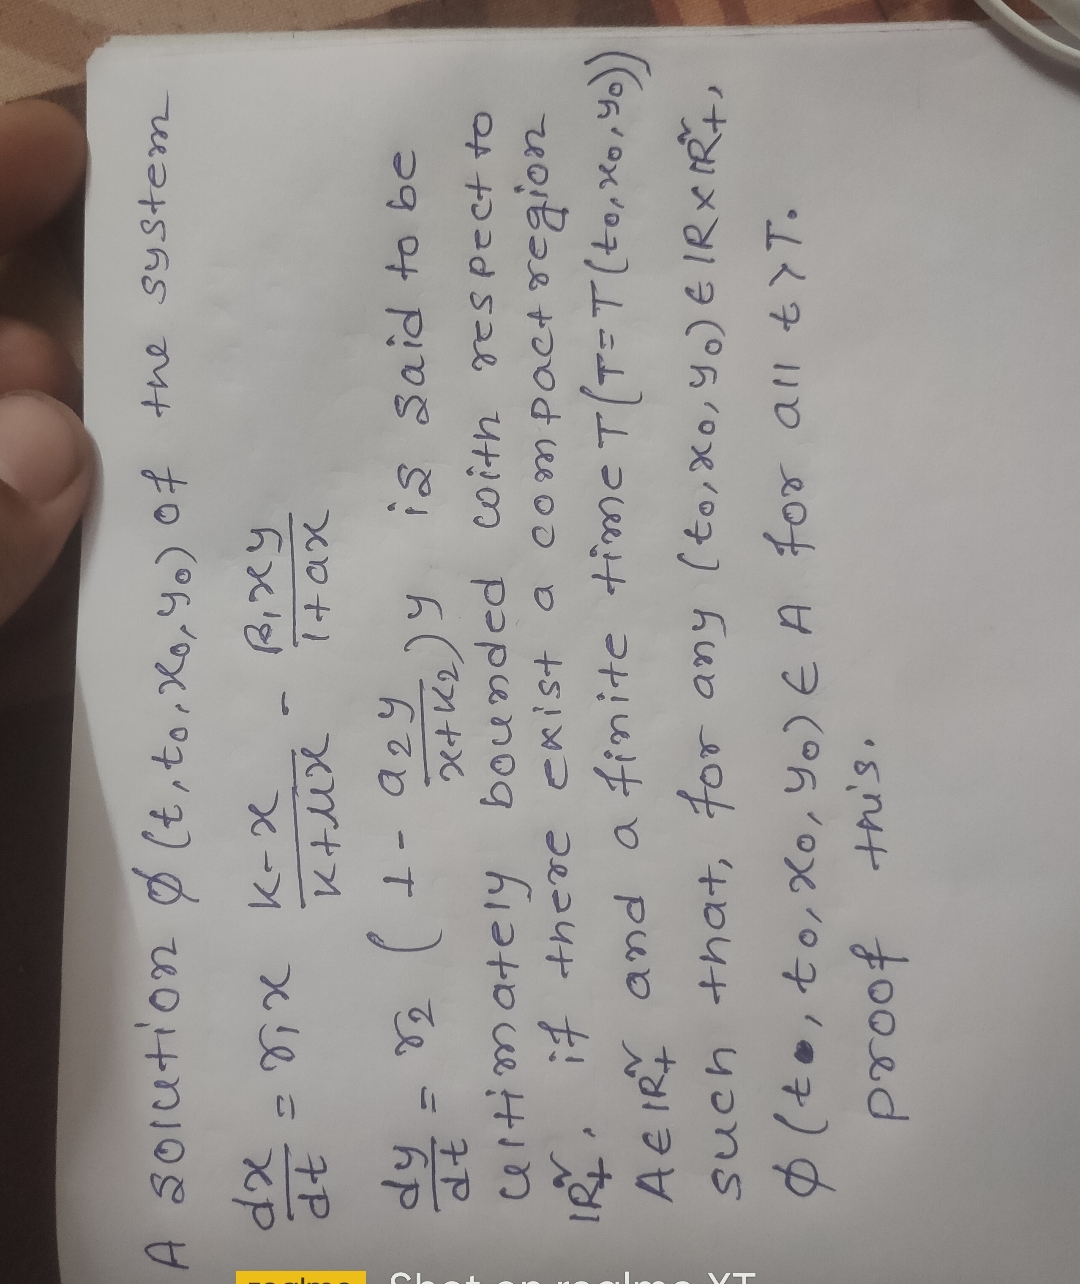 A solution Ø (t, t0, x0, y0) of the system
dx/dt = r1x (K-x)/(K+μx) - (β1xy)/(1+ax)
dy/dt = r2 (1 - (a2y)/(x+K2))y is said to be
ultimately bounded with respect to
ℝ²+. if there exist a compact region
A∈ℝ²+ and a finite time T(T=T(t0,x0,y0))
such that, for any (t0,x0,y0)∈ℝ×ℝ²+,
Ø (t, t0, x0, y0) ∈ A for all t>T.
proof this.
Shot on realme XT